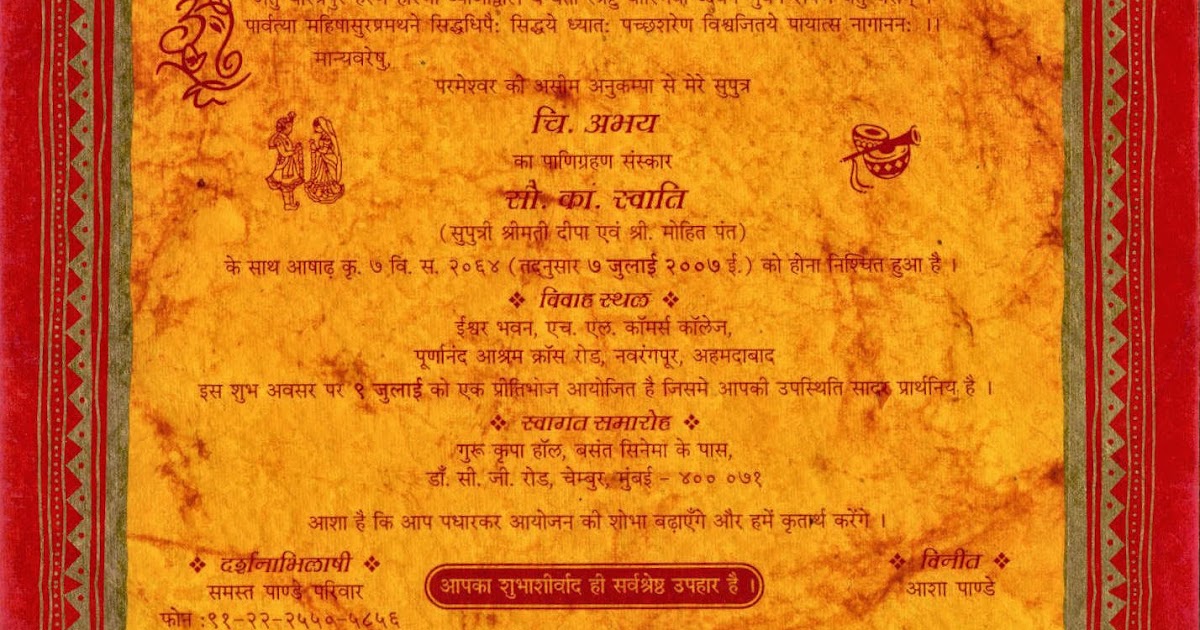 पार्वत्या महिषासुरप्रमथने सिद्धधिपैः सिद्धये ध्यातः पच्छशरेण विश्वजितये पायात्स नागाननः ।।
मान्यवरेषु,
परमेश्वर की असीम अनुकम्पा से मेरे सुपुत्र
चि. अभय
का पाणिग्रहण संस्कार
सौ. कां. स्वाति
(सुपुत्री श्रीमती दीपा एवं श्री. मोहित पंत)
के साथ आषाढ़ कृ. ७ वि. स. २०६४ (तदनुसार ७ जुलाई २००७ ई.) को होना निश्चित हुआ है ।
❖ विवाह स्थल ❖
ईश्वर भवन, एच. एल. कॉमर्स कॉलेज,
पूर्णानंद आश्रम क्रॉस रोड, नवरंगपूर, अहमदाबाद
इस शुभ अवसर पर ९ जुलाई को एक प्रीतिभोज आयोजित है जिसमे आपकी उपस्थिति सादर प्रार्थनिय है ।
❖ स्वागत समारोह ❖
गुरू कृपा हॉल, बसंत सिनेमा के पास,
डॉ. सी. जी. रोड, चेम्बुर, मुंबई - ४०० ०७१
आशा है कि आप पधारकर आयोजन की शोभा बढ़ाएँगे और हमें कृतार्थ करेंगे ।
❖ दर्शनाभिलाषी ❖
समस्त पाण्डे परिवार
फोन :९१-२२-२५५०-५८५६
आपका शुभाशीर्वाद ही सर्वश्रेष्ठ उपहार है ।
❖ विनीत ❖
आशा पाण्डे